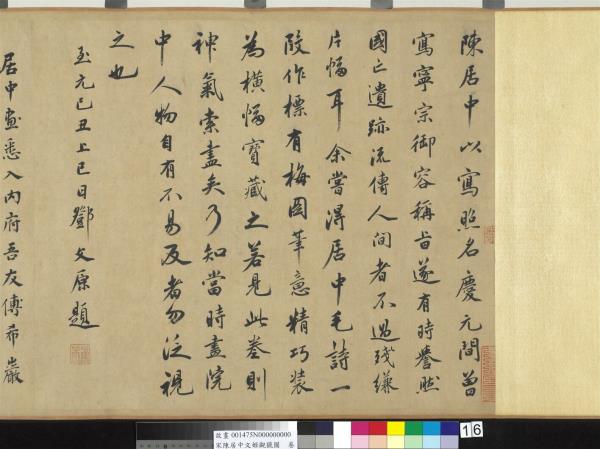 陳居中以寫照名慶元間曾
寫寧宗御容稱旨遂有時譽然
國亡遺跡流傳人間者不過殘縑
片幅耳余嘗得居中毛詩一
段作標有梅圖筆意精巧裝
為橫幅寶藏之若見此卷則
神氣索盡矣乃知當時畫院
中人物自有不易及者勿泛視
之也
至元己丑上巳日鄧文原題
居中畫悉入內府吾友傅希巖
故畫 001475N000000000
宋陳居中文姬觀獵圖 卷
16